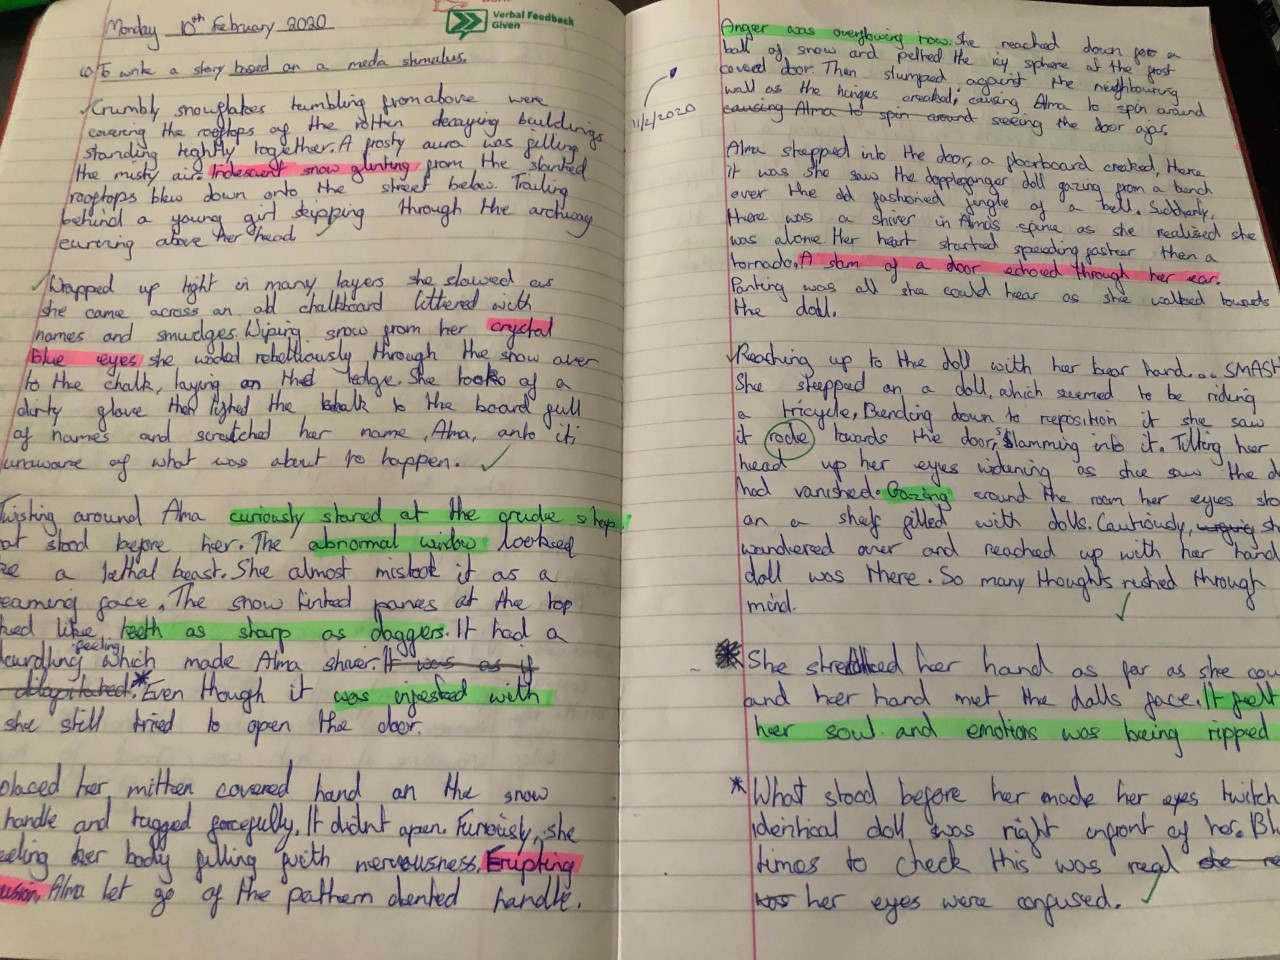 Monday 10th February 2020
Verbal Feedback
Given
To write a story based on a media stimulus.
Crumbly snowflakes tumbling from above were
covering the rooftops of the rotten decaying buildings
standing tightly together. A frosty aura was filling
the misty air. Iridescent snow glinting from the slanted
rooftops blew down onto the street below. Trailing
behind a young girl skipping through the archway
curving above her head.
Wrapped up tight in many layers she slowed as
she came across an old chalkboard littered with
names and smudges. Wiping snow from her crystal
blue eyes she waded rebelliously through the snow over
to the chalk, laying on the ledge. She took of a
dirty glove then lifted the chalk to the board full
of names and scratched her name, Alma, onto it;
unaware of what was about to happen.
Twisting around Alma curiously stared at the
at stood before her. The abnormal window looked
a lethal beast. She almost mistook it as a
face. The snow tinted panes at the top
like teeth as sharp as daggers. It had a
curdling feeling which made Alma shiver. It was as if
dilapitated. *Even though it was infested with
she still tried to open the door.
placed her mitten covered hand on the snow
handle and tugged forcefully. It didnt open. Furiously, she
her body filling with nervousness. Erupting
Alma let go of the pattern dented handle.
Anger was overflowing now. She reached down for a
ball of snow and pelted the icy sphere at the frost
covered door. Then slumped against the neighbouring
wall as the hinges creaked; causing Alma to spin around
causing Alma to spin around seeing the door ajar.
11/2/2020
Alma stepped into the door, a floorboard creaked, there
it was she saw the doppleganger doll gazing from a bench
over the old fashioned jingle of a bell. Suddenly,
there was a shiver in Alma's spine as she realised she
was alone. Her heart started speeding faster then a
tornado. A slam of a door echoed through her ear.
Panting was all she could hear as she walked towards
the doll.
Reaching up to the doll with her bear hand... SMASH
She stepped on a doll, which seemed to be riding
a tricycle. Bending down to reposition it she saw
it rode towards the door, slamming into it. Tilting her
head up her eyes widening as she saw the d
had vanished. Gazing around the room her eyes sto
on a shelf filled with dolls. Cautiously, sh
wandered over and reached up with her hand
doll was there. So many thoughts rushed through
mind.
*She stretched her hand as far as she cou
and her hand met the dolls face. It felt
her soul and emotions was being ripped
*What stood before her made her eyes twitch
identical doll was right infront of her. Bl
times to check this was real she re
her eyes were confused.